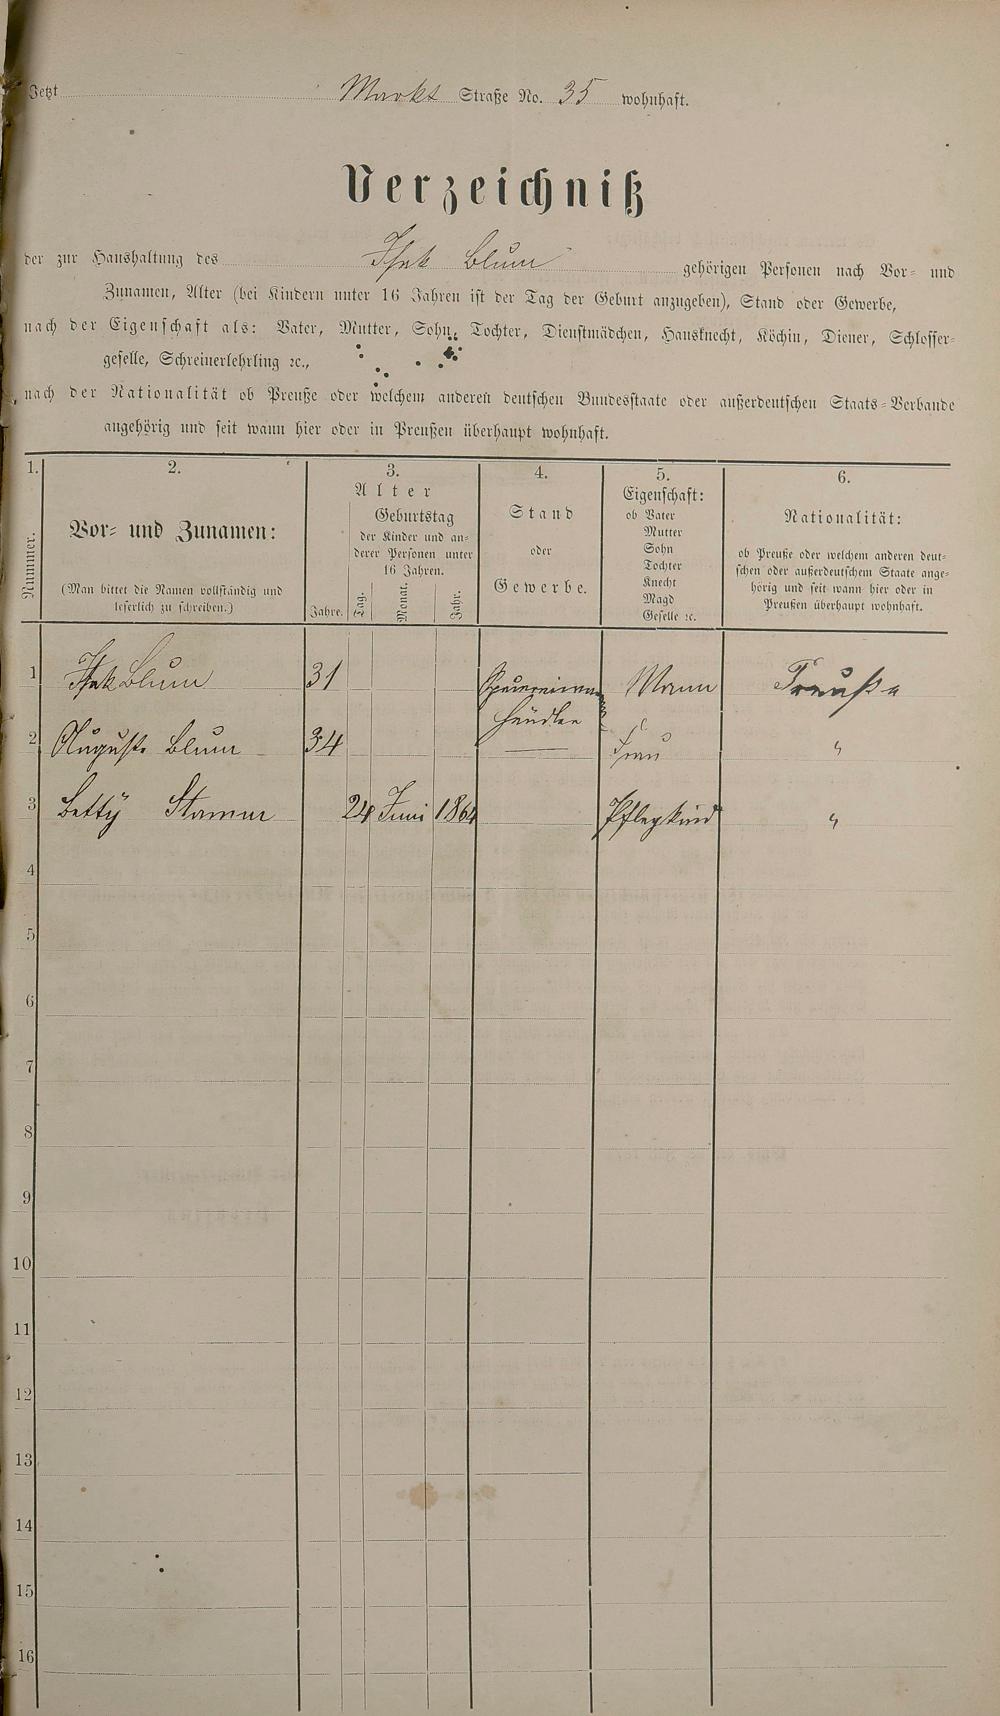 Jetzt Markt Straße No. 35 wohnhaft.
Verzeichniß
der zur Haushaltung des Isak Blum gehörigen Personen nach Vor- und
Zunamen, Alter (bei Kindern unter 16 Jahren ist der Tag der Geburt anzugeben), Stand oder Gewerbe,
nach der Eigenschaft als: Vater, Mutter, Sohn, Tochter, Dienstmädchen, Hausknecht, Köchin, Diener, Schlosser-
geselle, Schreinerlehrling ꝛc.,
nach der Nationalität ob Preuße oder welchem anderen deutschen Bundesstaate oder außerdeutschen Staats-Verbande
angehörig und seit wann hier oder in Preußen überhaupt wohnhaft.
1. 2. 3. 4. 5. 6.
Nummer.
Vor- und Zunamen:
(Man bittet die Namen vollständig und
leserlich zu schreiben.)
Alter
Jahre.
Geburtstag
der Kinder und an-
derer Personen unter
16 Jahren.
Tag. Monat. Jahr.
Stand
oder
Gewerbe.
Eigenschaft:
ob Vater
Mutter
Sohn
Tochter
Knecht
Magd
Geselle ꝛc.
Nationalität:
ob Preuße oder welchem anderen deut-
schen oder außerdeutschem Staate ange-
hörig und seit wann hier oder in
Preußen überhaupt wohnhaft.
1 Isak Blum 31 Mann Preuße
händler
2 Auguste Blum 34 Frau "
3 Betty Stamm 24 Juni 1864 Pflegkind "
4
5
6
7
8
9
10
11
12
13
14
15
16